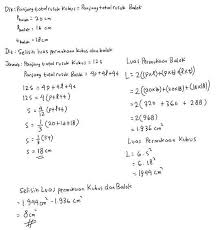 Dik : Panjang total rusuk kubus = Panjang total rusuk Balok
P balok = 20 cm
l balok = 18 cm
t balok = 16 cm
Dit : Selisih luas permukaan kubus dan balok
Jawab : Panjang total rusuk kubus = 12s
Panjang total rusuk Balok = 4p + 4l + 4t
12s = 4p + 4l + 4t
12s = 4(p + l + t)
s = 4/12 (p + l + t)
s = 1/3 (20 + 18 + 16)
s = 1/3 (54)
s = 18 cm
Luas Permukaan Balok
= 2(968)
= 1.936 cm²
Luas Permukaan Kubus
L = 6.s²
= 6.18²
= 1944 cm²
Selisih Luas permukaan Kubus dan Balok
= 1.944 cm² - 1.936 cm²
= 8 cm²